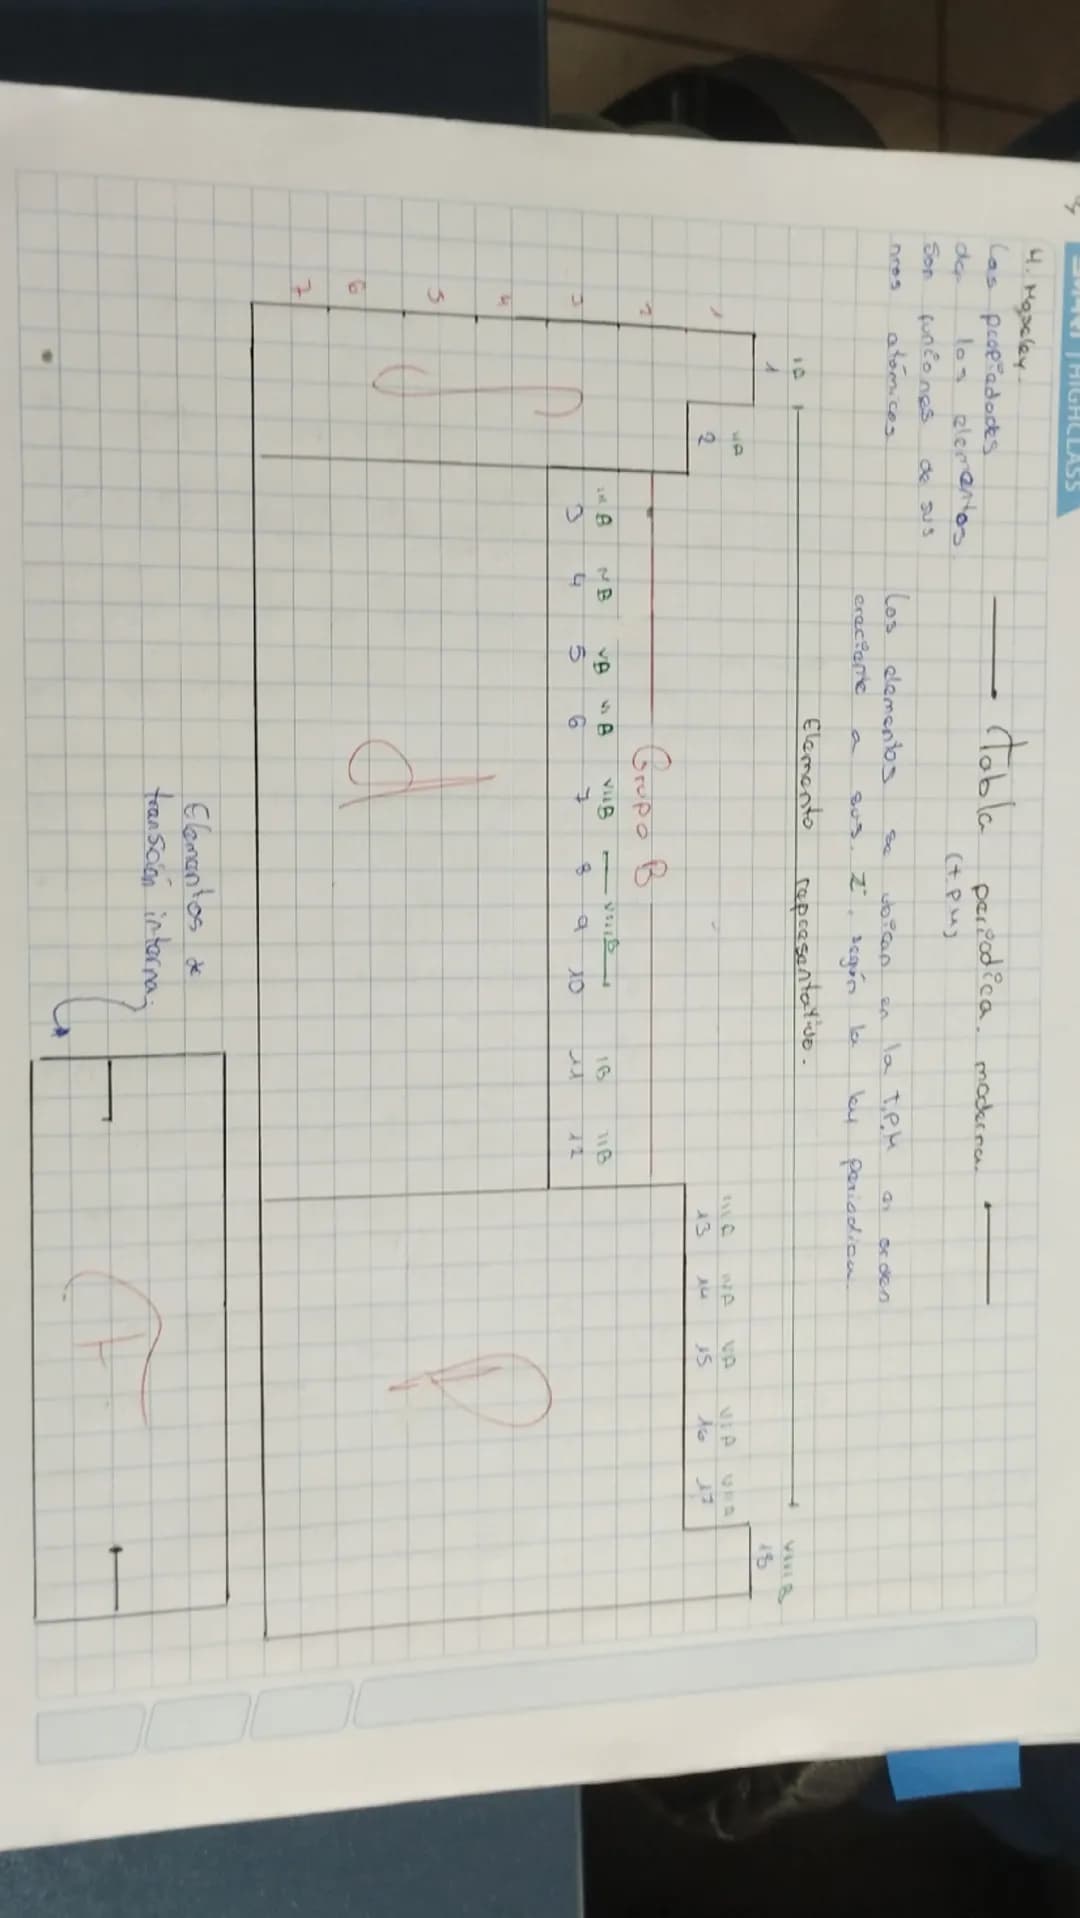 SMART | HIGHCLASS
4. Moseley.
Las propiedades
de los elementos
son funciones de sus
nros atómicos
Tabla periodica moderna.
(T.P.M)
Los elementos se ubican en la T.P.M en orden
creciente a sus. Z. según la ley periodica
Elemento representativo.
IA
1
IIA
2
Grupo B
IIIB IVB VB VIB VIIB VIIIB IB IIB
3 4 5 6 7 8 9 10 11 12
IIIA IVA VA VIA VIIA
13 14 15 16 17
VIIIB
18
1
2
3
4
5
6
7
s
d
p
f
Elementos de
transición interna.